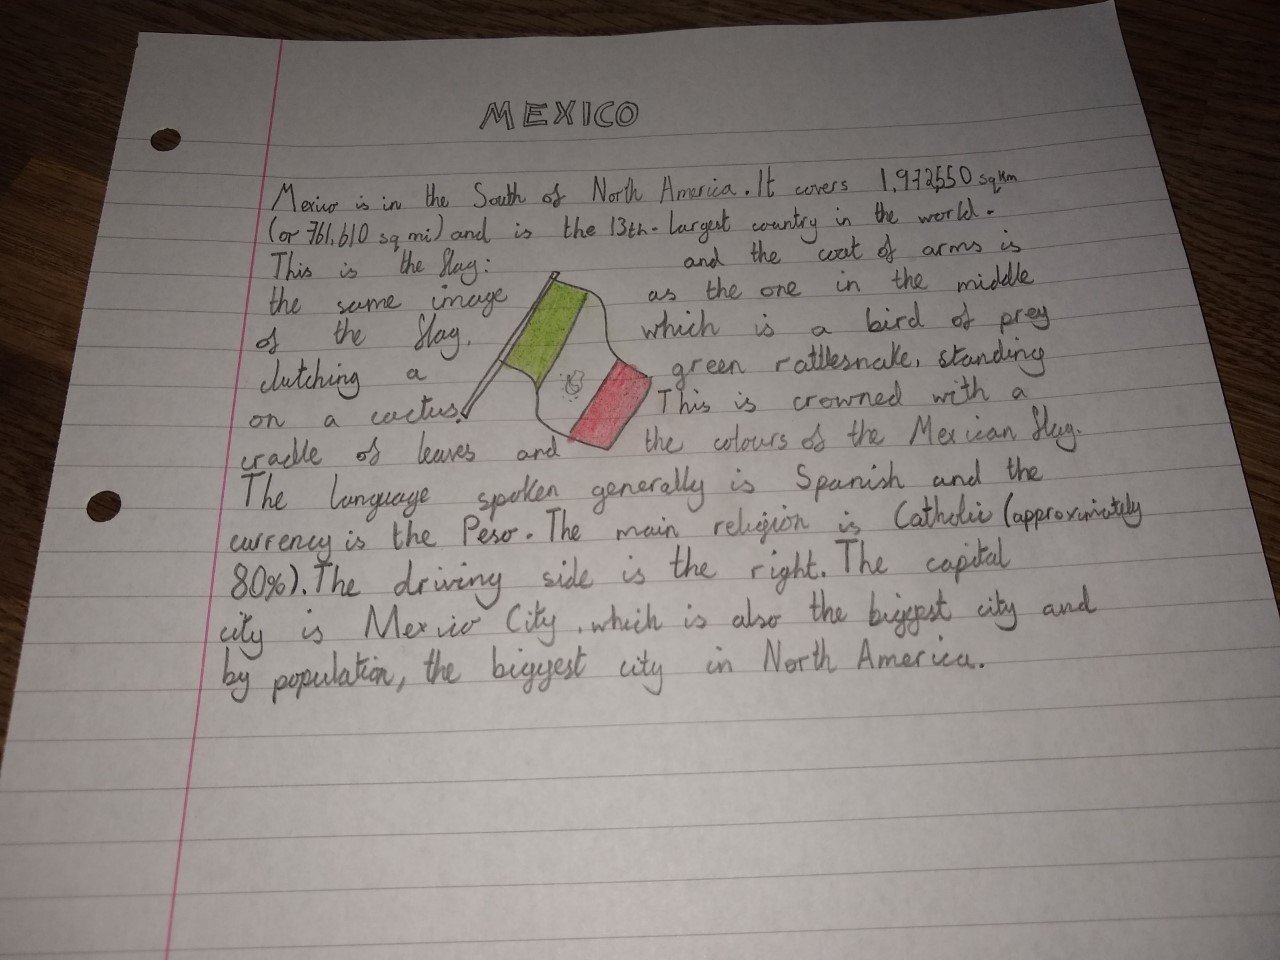 MEXICO
Mexico is in the South of North America. It covers 1,972,550 sq km
(or 761,610 sq mi) and is the 13th-largest country in the world.
This is the flag: and the coat of arms is
the same image as the one in the middle
of the flag, which is a bird of prey
clutching a green rattlesnake, standing
on a cactus. This is crowned with a
cradle of leaves and the colours of the Mexican flag.
The language spoken generally is Spanish and the
currency is the Peso. The main religion is Catholic (approximately
80%). The driving side is the right. The capital
city is Mexico City, which is also the biggest city and
by population, the biggest city in North America.